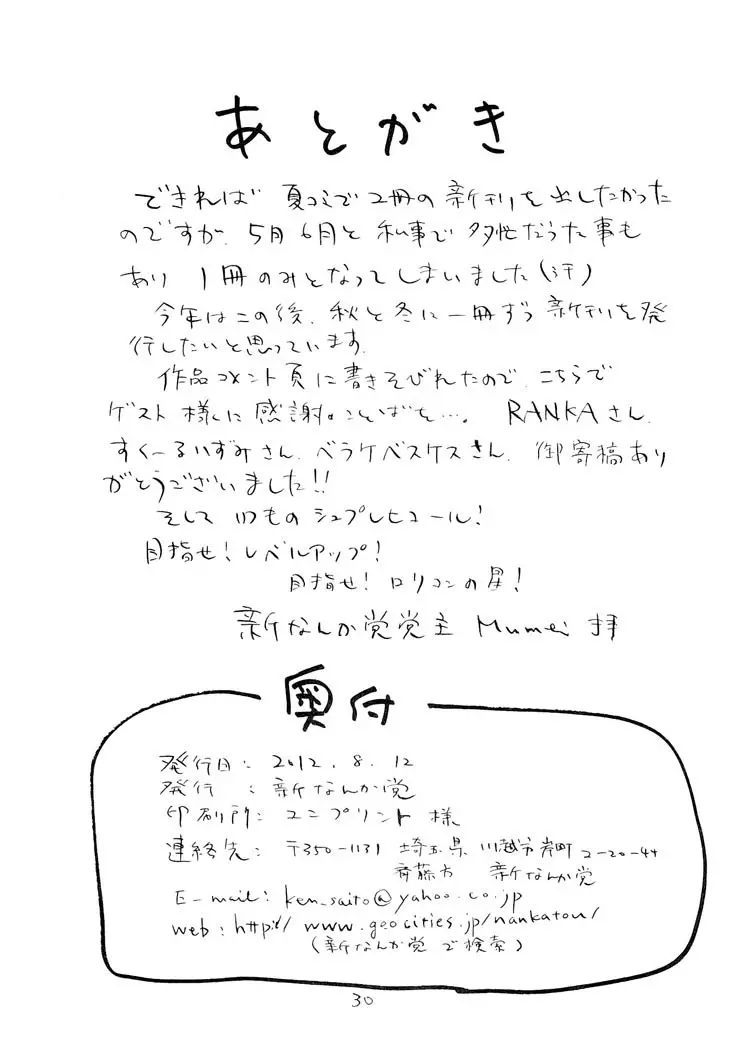 あとがき
できれば 夏コミで2冊の新刊を出したかった
のですが、5月6月と私事で多忙だった事も
あり 1冊のみとなってしまいました(汗)
今年はこの後、秋と冬に一冊ずつ新刊を発
行したいと思っています。
作品コメント頁に書きそびれたので、こちらで
ゲスト様に感謝のことばを…。 RANKAさん、
すくーるいずみさん、ベラケベスケスさん、御寄稿あり
がとうございました!!
そしていつものシュプレヒコール!
目指せ!レベルアップ!
目指せ!ロリコンの星!
新なんか党党主 Mumei 拝
奥付
発行日: 2012.8.12
発行 : 新なんか党
印刷所: ユニプリント様
連絡先: 〒350-1131 埼玉県 川越市岸町2-20-44
斉藤方 新なんか党
E-mail: ken_saito@yahoo.co.jp
web: http:// www.geocities.jp/nankatou/
(新なんか党 で検索)
30